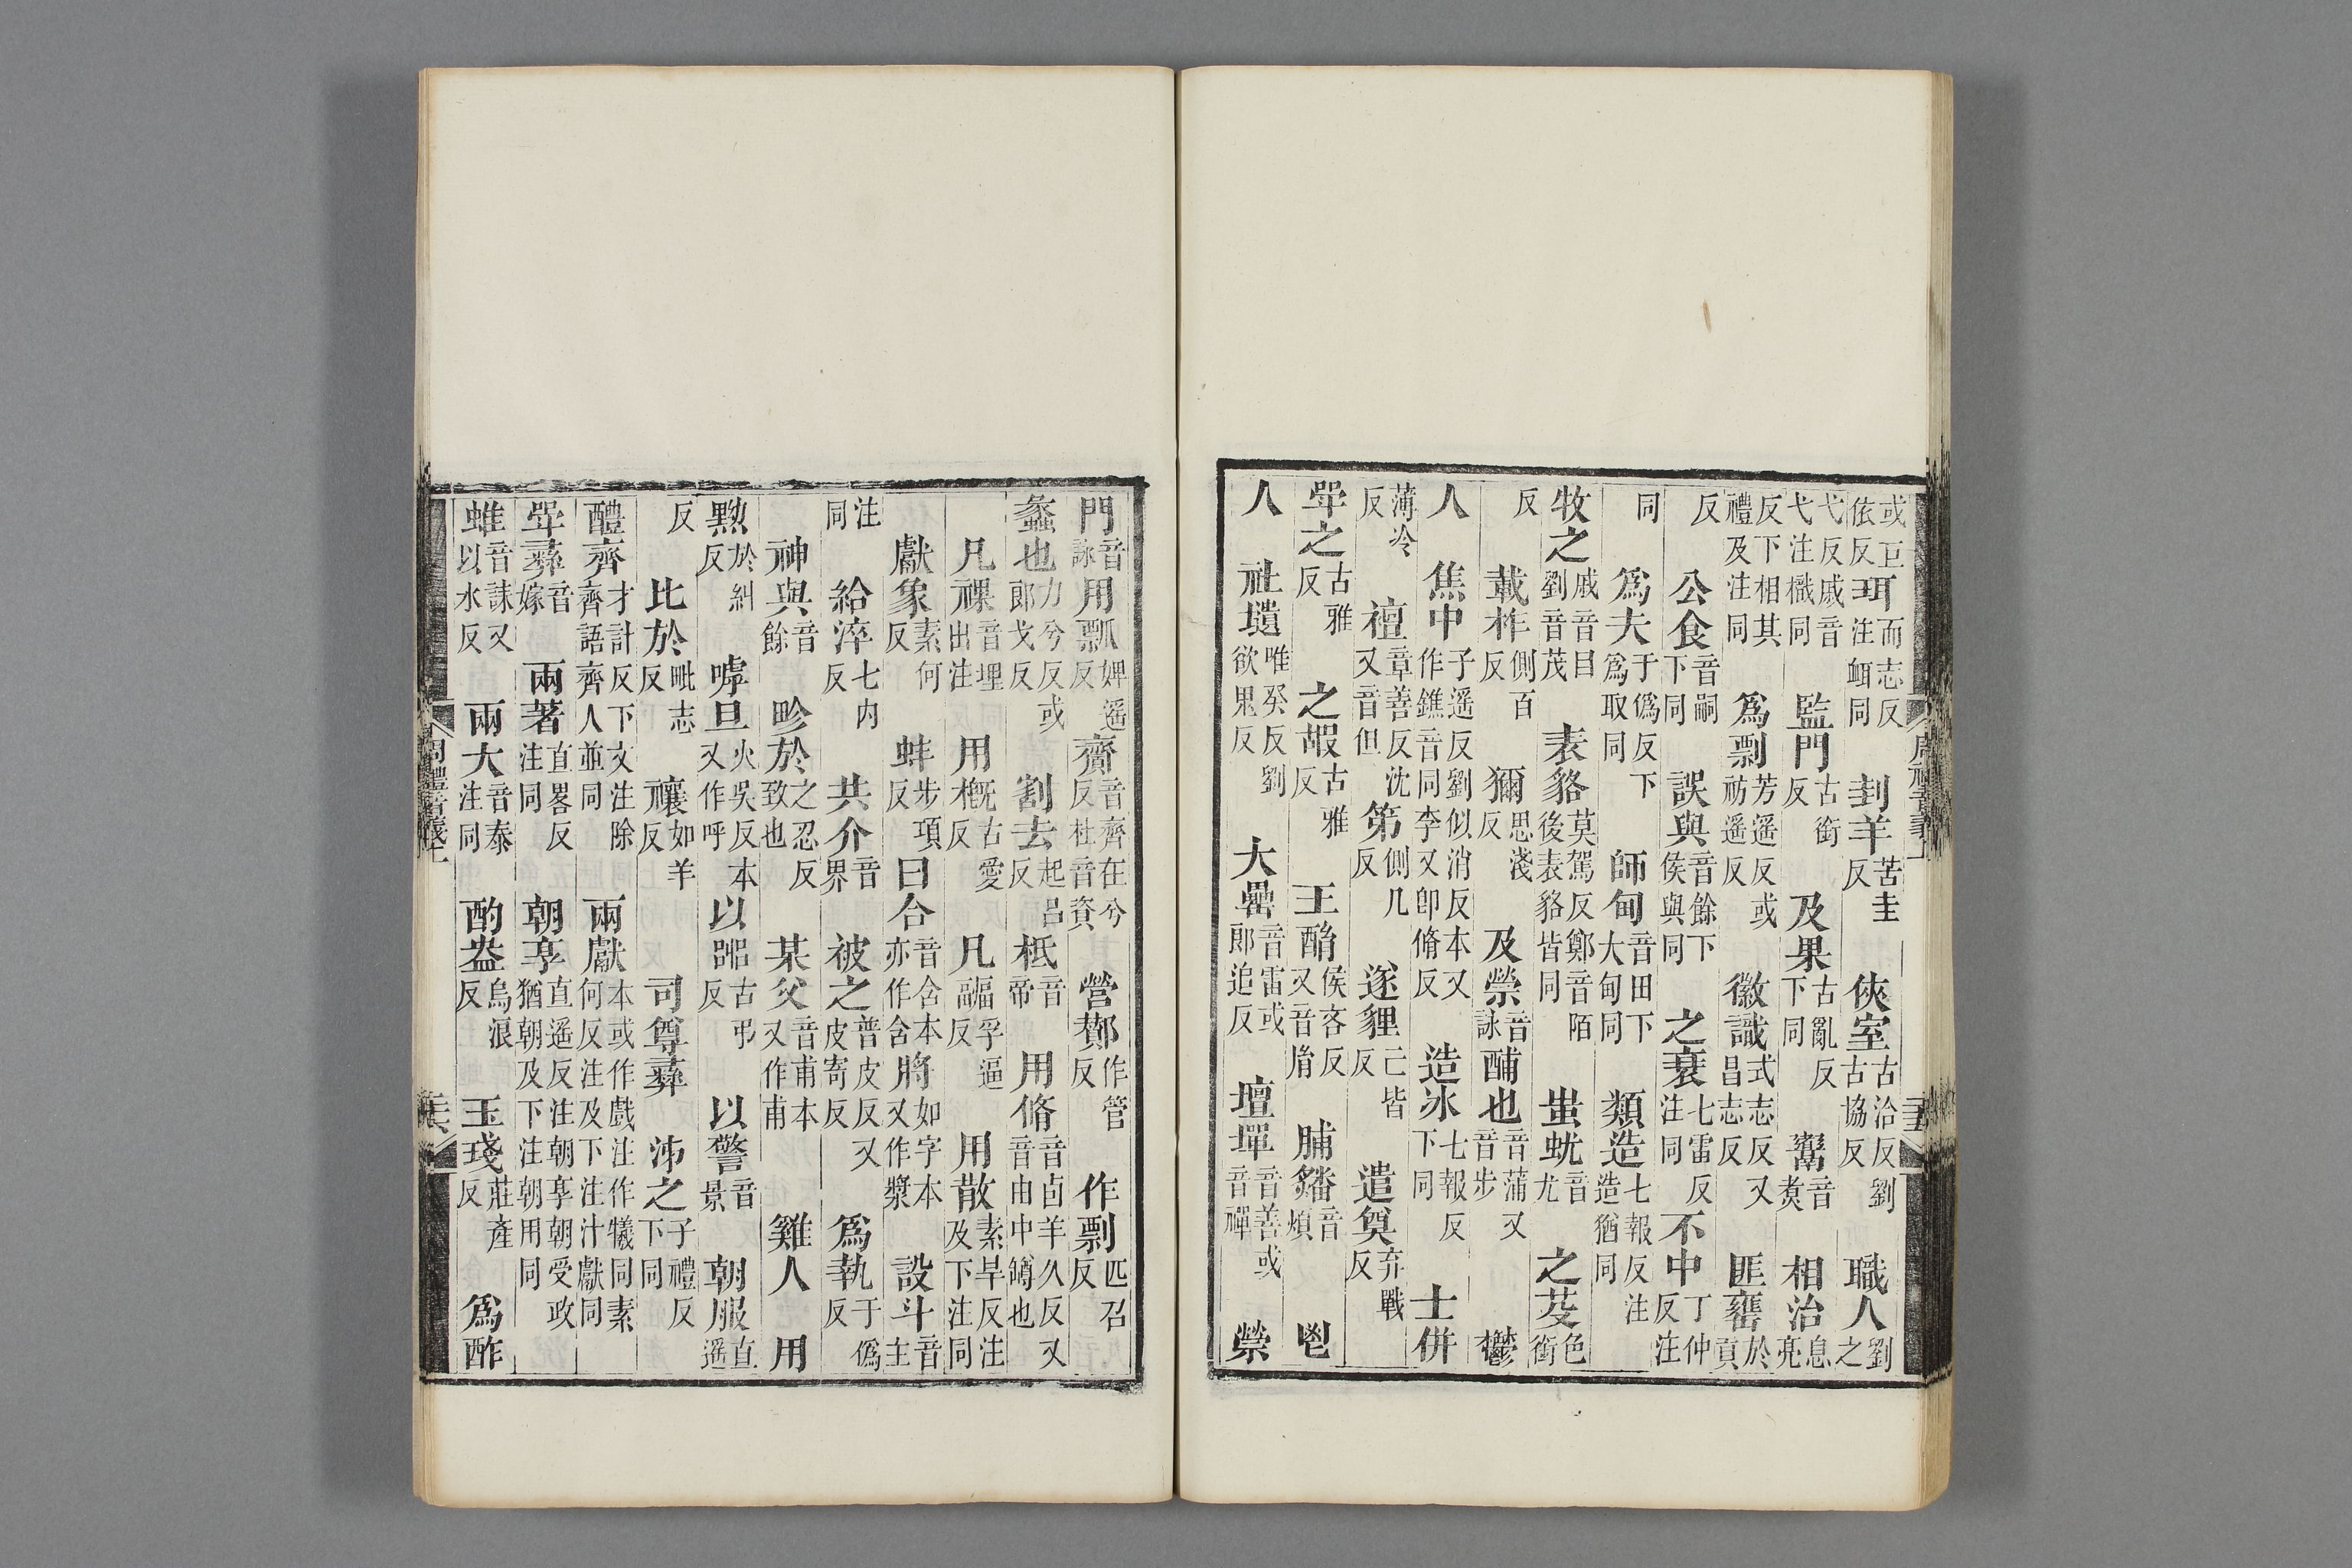 或亘而志反
依反珥注衈同 刲羊苦圭反 俠室古洽反劉古協反 職人劉之
弋反戚音弋注樴同 監門古銜反 及果古亂反下同 鬻音煑 相治息亮
反下相其禮及注同 爲剽芳遥反或祊遥反 徽識式志反又昌志反 匪罋於貢
反 公食音嗣下同 誤與音餘下侯與同 之衰七雷反注同 不中丁仲反注
同 爲夫于僞反下爲取同 師甸音田下大甸同 類造七報反注造猶同
牧之戚音目劉音茂 表貉莫駕反鄭音陌後表貉皆同 蚩蚘音尤 之芟色銜
反 載柞側百反 獮思淺反 及禜音詠酺也音蒲又音步 鬱
人 焦中子遥反劉似消反本又作鐎音同李又卽脩反 造冰七報反下同 士併
薄冷反 襢章善反沈又音但 第側几反 遂貍亡皆反 遣奠弃戰反
斝之古雅反 之嘏古雅反 王酳侯吝反又音胤 脯燔音煩 鬯
人 社壝唯癸反劉欲鬼反 大罍音雷或郎追反 壇墠音善或音禪 禜
門音詠用瓢婢遥反齎音齊在兮反杜音資 營酇作管反 作剽匹召反
蠡也力兮反或郎戈反 割去起呂反 柢音帝 用脩音卣羊久反又音由中罇也
凡祼音埋出注 用概古愛反 凡疈孚逼反 用散素旱反注及下注同
獻象素何反 蚌步項反 曰合音含本亦作含將如字本又作漿 設斗音主
注同 給淬七内反 共介音界 被之普皮反又皮寄反 爲執于僞反
神與音餘 畛於之忍反致也 某父音甫本又作甫 雞人 用
黝於糾反 嘑旦火吳反本又作呼 以嘂古弔反 以警音景 朝服直遥
反 比於毗志反 禳如羊反 司尊彝 泲之子禮反下同
醴齊才計反下文注除齊語齊人並同 兩獻本或作戲注作犧同素何反注及下注汁獻同
斝彝音嫁 兩著直畧反注同 朝享直遥反注朝享朝受政猶朝及下注朝用同
蜼音誄又以水反 兩大音泰注同 酌盎烏浪反 玉琖莊產反 爲酢